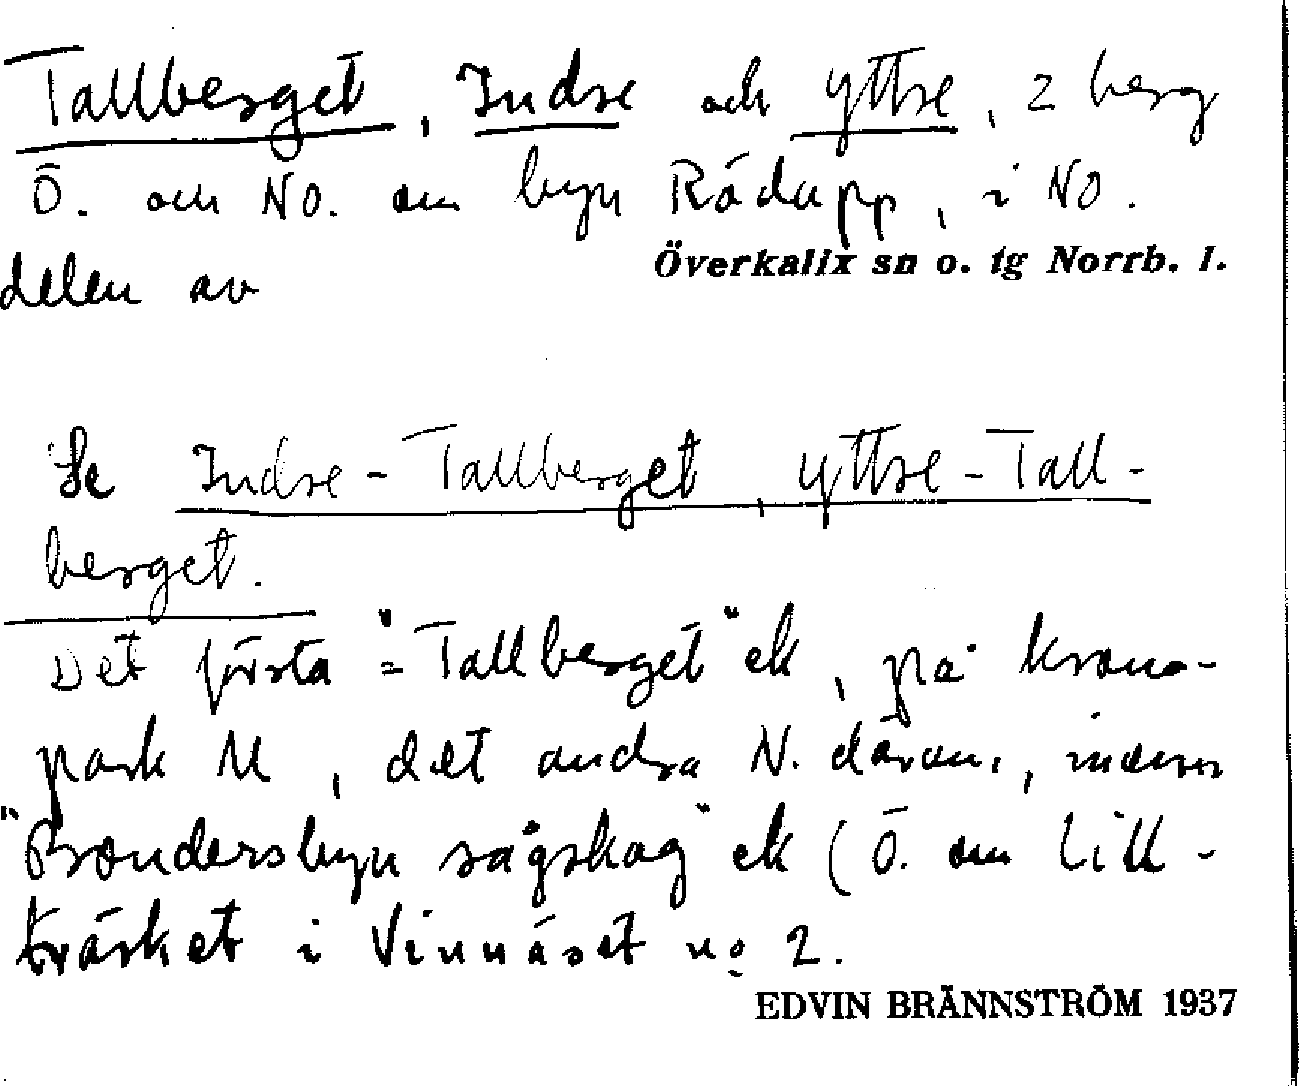 Tallberget, Indre och yttre, 2 berg
Ö. och NO. om byn Rödupp, i NO.
Överkalix sn o. tg Norrb. l.
delen av
Se Indre-Tallberget, yttre-Tall-
berget.
Det första = "Tallberget" ek, på krono-
park M, det andra N. därom, inom
"Brändersbyn sågskog" ek (Ö. om Lill-
träsket i Vinnäset no 2.
EDVIN BRÄNNSTRÖM 1937